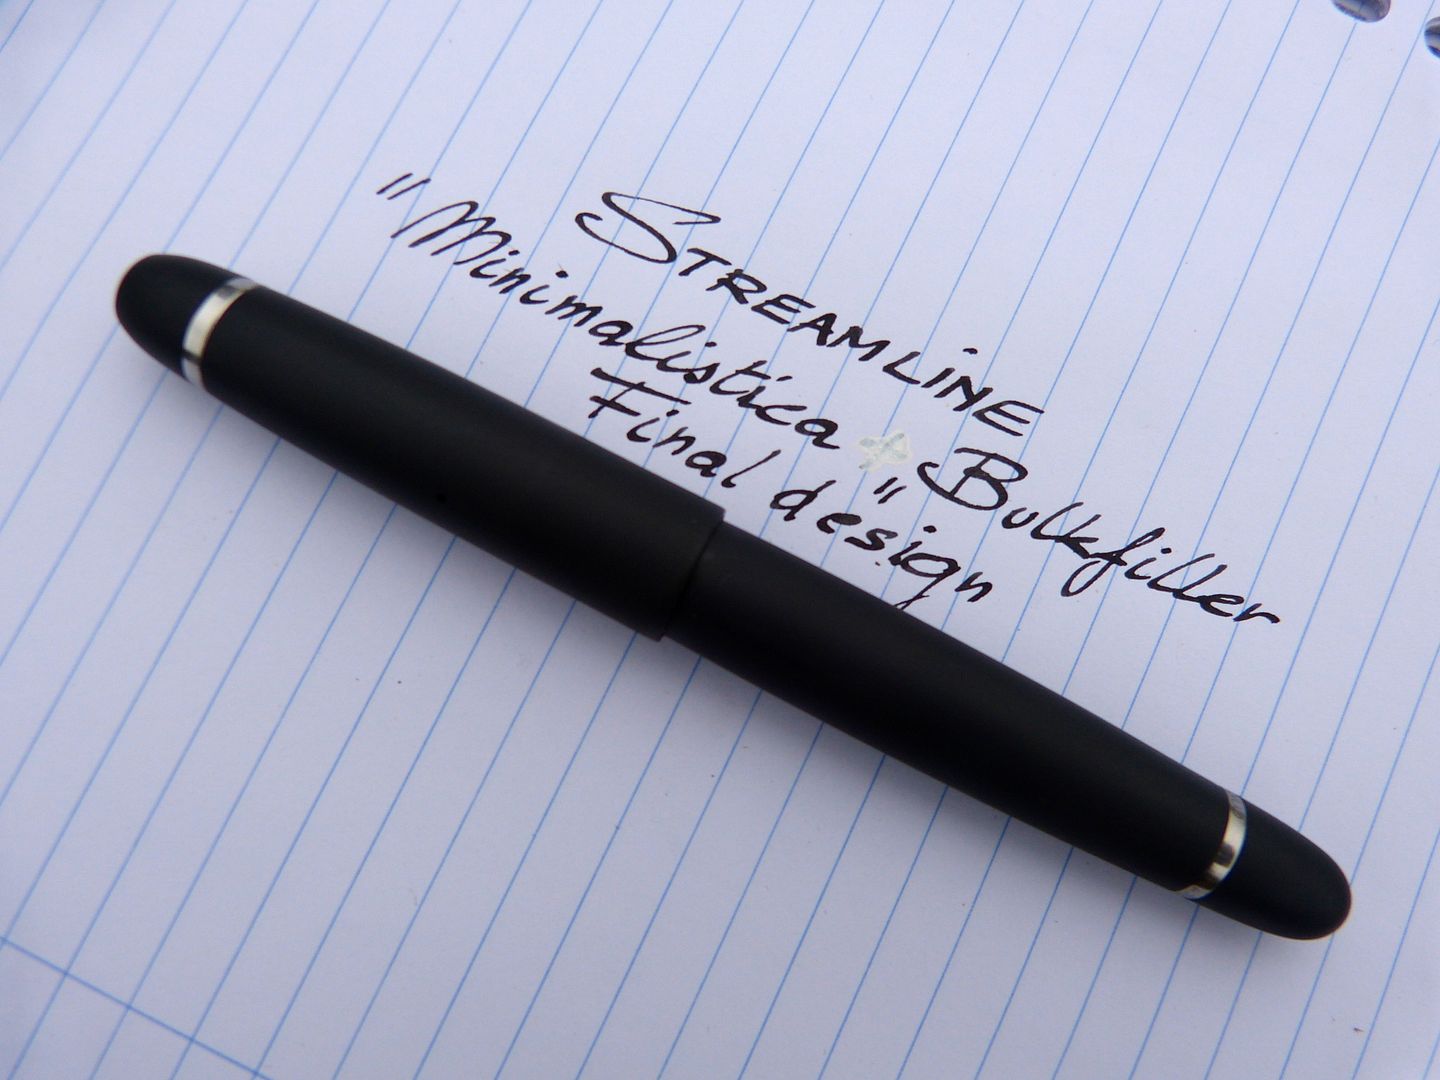 STREAMLiNE
"Minimalistica" Bulkfiller
Final design